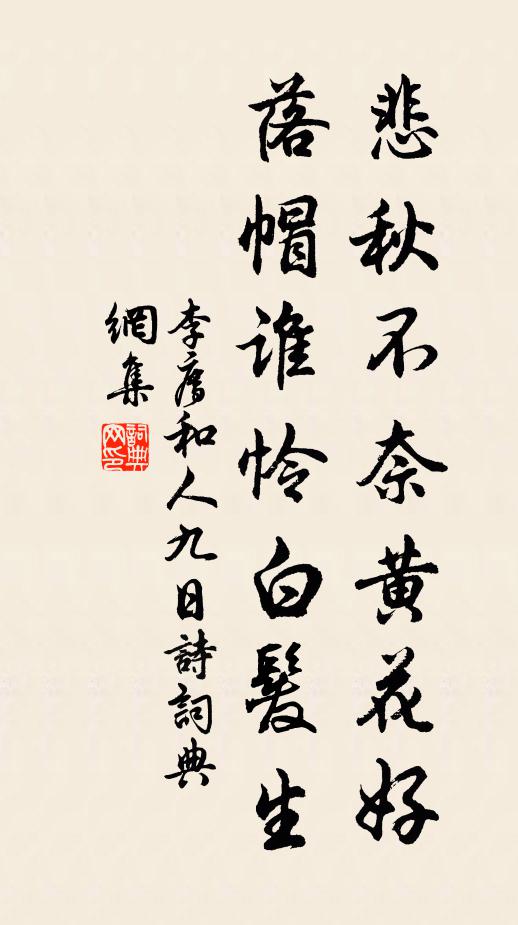 悲秋不奈黄花好
落帽谁怜白髮生
李和人九日詩詞典
網集
詞典
网印